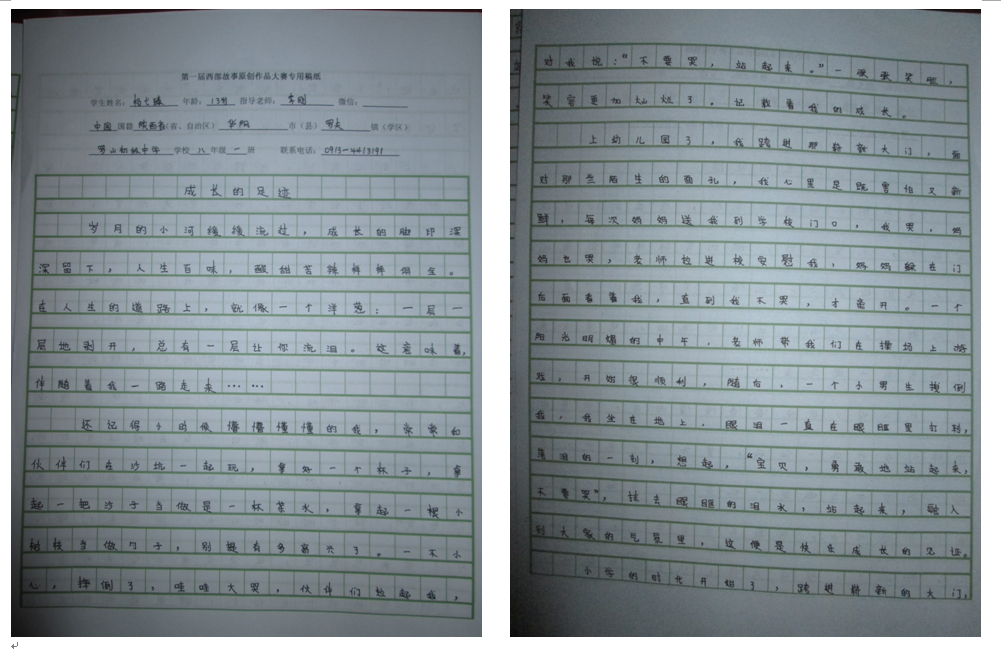 第一届西部故事原创作品大赛专用稿纸
学生姓名： 年龄：13岁 指导老师：李刚 微信：
中国 国籍 陕西省（省、自治区） 华阴 市（县） 罗夫 镇（学区）
罗山初级中学 学校 八 年级 一 班 联系电话：0913-4613191
成长的足迹
岁月的小河缓缓流过，成长的脚印深
深留下，人生百味，酸甜苦辣样样俱全。
在人生的道路上，就像一个洋葱：一层一
层地剥开，总有一层让你流泪。这意味着，
伴随着我一路走来……
还记得小时候懵懵懂懂的我，常常和
伙伴们在沙坑一起玩，拿好一个杯子，拿
起一把沙子当做是一杯茶水，拿起一根小
树枝当做勺子，别提有多高兴了。一不小
心，摔倒了，哇哇大哭，伙伴们拉起我，
对我说：“不要哭，站起来。”一张张笑脸，
笑容更加灿烂了。记载着我的成长。
上幼儿园了，我跨进那崭新大门，面
对那些陌生的面孔，我心里是既害怕又新
鲜，每次妈妈送我到学校门口，我哭，妈
妈也哭，老师拉进校安慰我，妈妈躲在门
后面看着我，直到我不哭，才离开。一个
阳光明媚的中午，老师带我们在操场上游
戏，开始很顺利，随后，一个小男生撞倒
我，我坐在地上，眼泪一直在眼眶里打转，
落泪的一刻，想起，“宝贝，勇敢地站起来，
不要哭”，抹去眼眶的泪水，站起来，融入
到大家的气氛里，这便是快乐成长的见证。
小学的时光开始了，跨进崭新的大门，